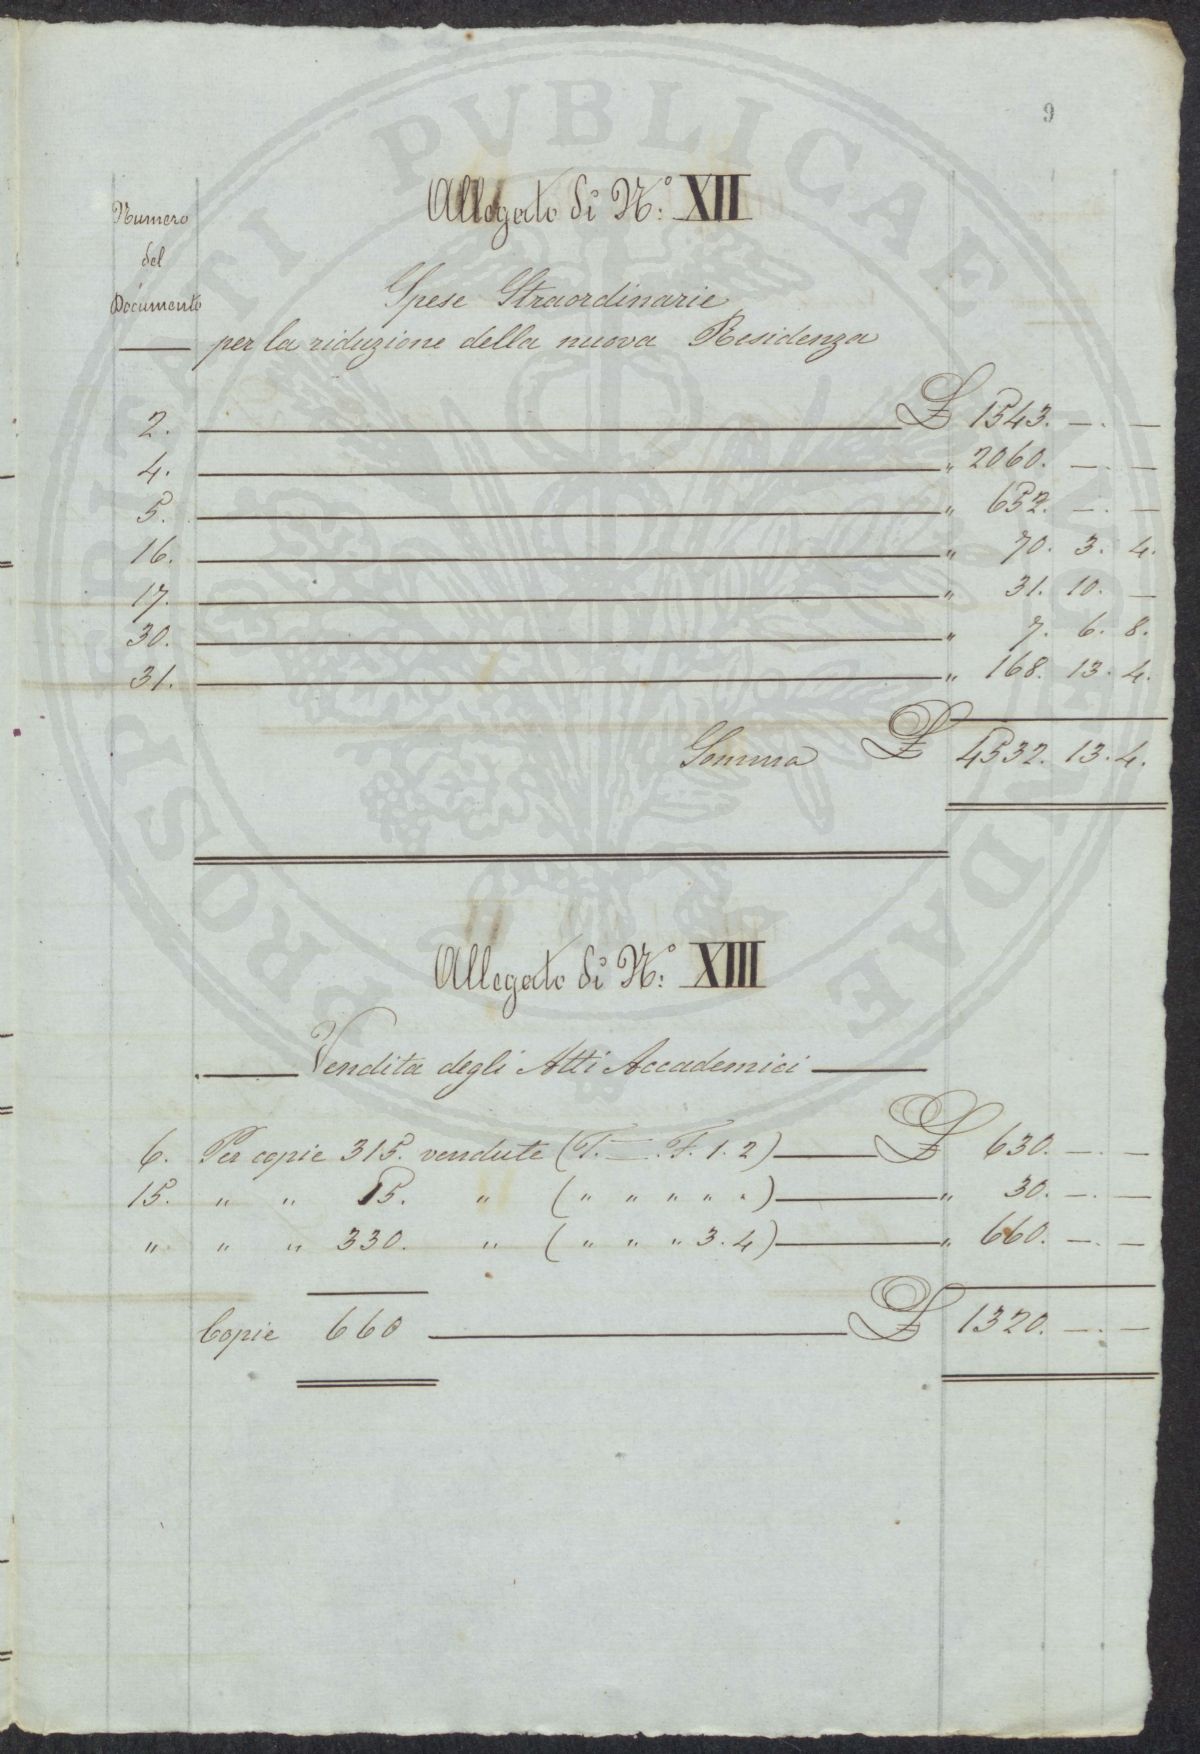 9
Allegato di N.º XII
Numero
del
Documento
Spese Straordinarie
per la riduzione della nuova Residenza
2. £ 1543. —. —
4. " 2060. —. —
5. " 652. —. —
16. " 70. 3. 4.
17. " 31. 10. —
30. " 7. 6. 8.
31. " 168. 13. 4.
Somma £ 4532. 13. 4.
Allegato di N.º XIII
Vendita degli Atti Accademici
6. Per copie 315. vendute (T. — F. 1. 2) £ 630. —. —
15. " " 15. " ( " " " " " ) " 30. —. —
" " " 330. " ( " " " 3. 4) " 660. —. —
Copie 660 £ 1320. —. —
PROSPERITATI PVBLICAE AVGENDAE